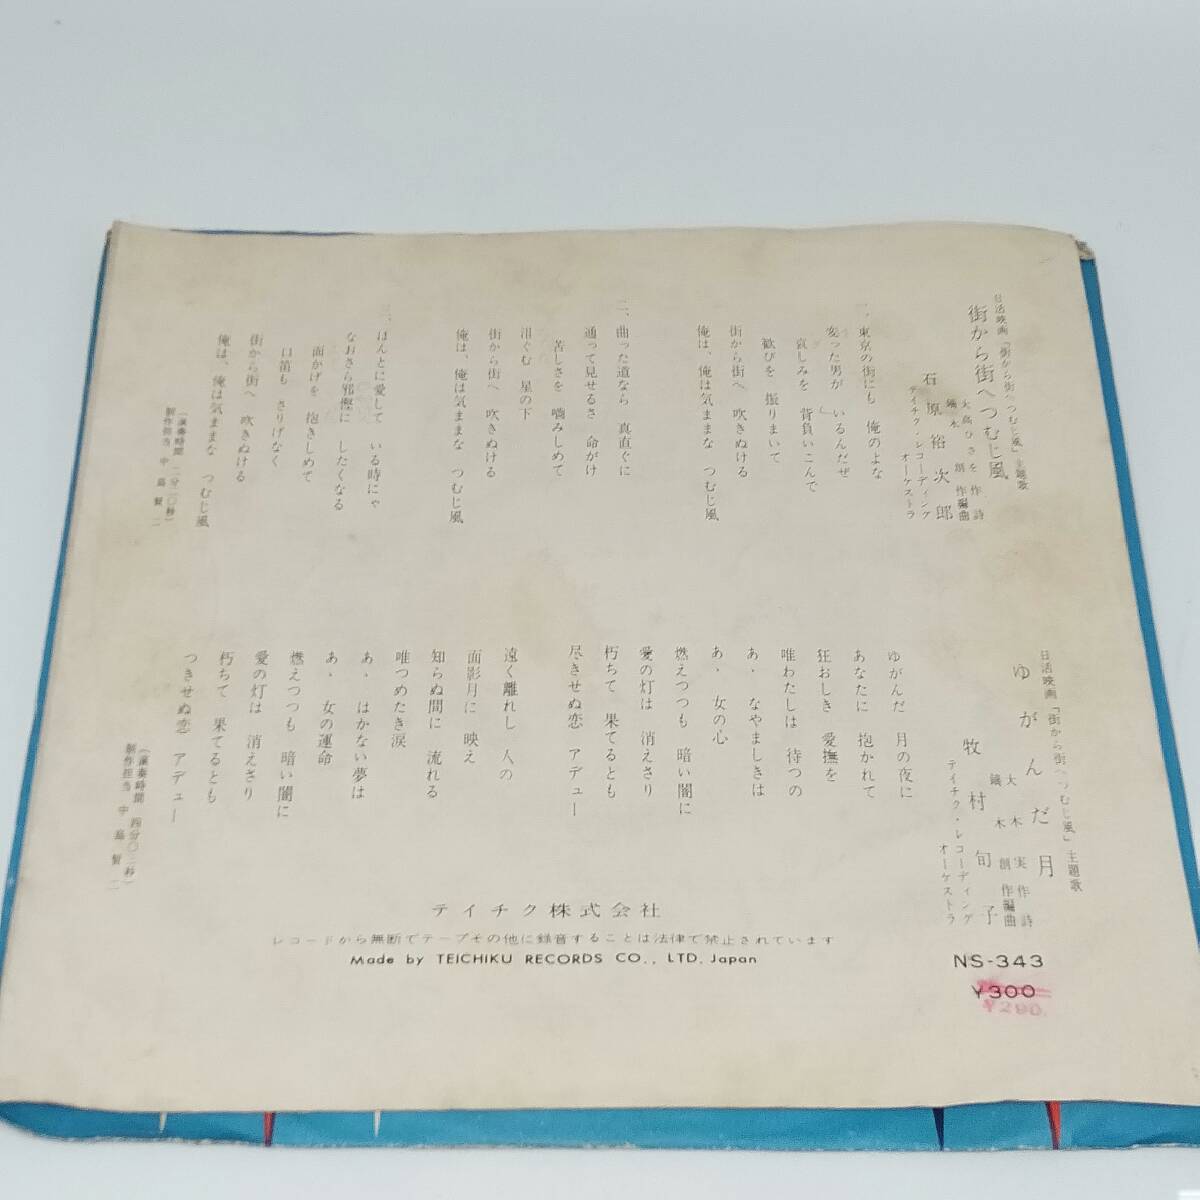 日活映画「街から街へつむじ風」主題歌
街から街へつむじ風
大高ひさを 作詩
鏑木 創 作編曲
石原裕次郎
テイチク・レコーディング
オーケストラ
一、東京の街にも 俺のよな
変った男が いるんだぜ
哀しみを 背負いこんで
歓びを 振りまいて
街から街へ 吹きぬける
俺は、俺は気ままな つむじ風
二、曲った道なら 真直ぐに
通って見せるさ 命がけ
苦しさを 噛みしめて
泪ぐむ 星の下
街から街へ 吹きぬける
俺は、俺は気ままな つむじ風
三、ほんとに愛して いる時にゃ
なおさら邪慳に したくなる
面かげを 抱きしめて
口笛も さりげなく
街から街へ 吹きぬける
俺は、俺は気ままな つむじ風
(演奏時間 二分二〇秒)
制作担当 中島賢二
日活映画「街から街へつむじ風」主題歌
ゆがんだ月
大木 実 作詩
鏑木 創 作編曲
牧村旬子
テイチク・レコーディング
オーケストラ
ゆがんだ 月の夜に
あなたに 抱かれて
狂おしき 愛撫を
唯わたしは 待つの
あゝ なやましきは
あゝ 女の心
燃えつつも 暗い闇に
愛の灯は 消えさり
朽ちて 果てるとも
尽きせぬ恋 アデュー
遠く離れし 人の
面影月に 映え
知らぬ間に 流れる
唯つめたき涙
あゝ はかない夢は
あゝ 女の運命
燃えつつも 暗い闇に
愛の灯は 消えさり
朽ちて 果てるとも
つきせぬ恋 アデュー
(演奏時間 四分〇二秒)
制作担当 中島賢二
テイチク株式会社
レコードから無断でテープその他に録音することは法律で禁止されています
Made by TEICHIKU RECORDS CO., LTD. Japan
NS-343
¥300
¥290.